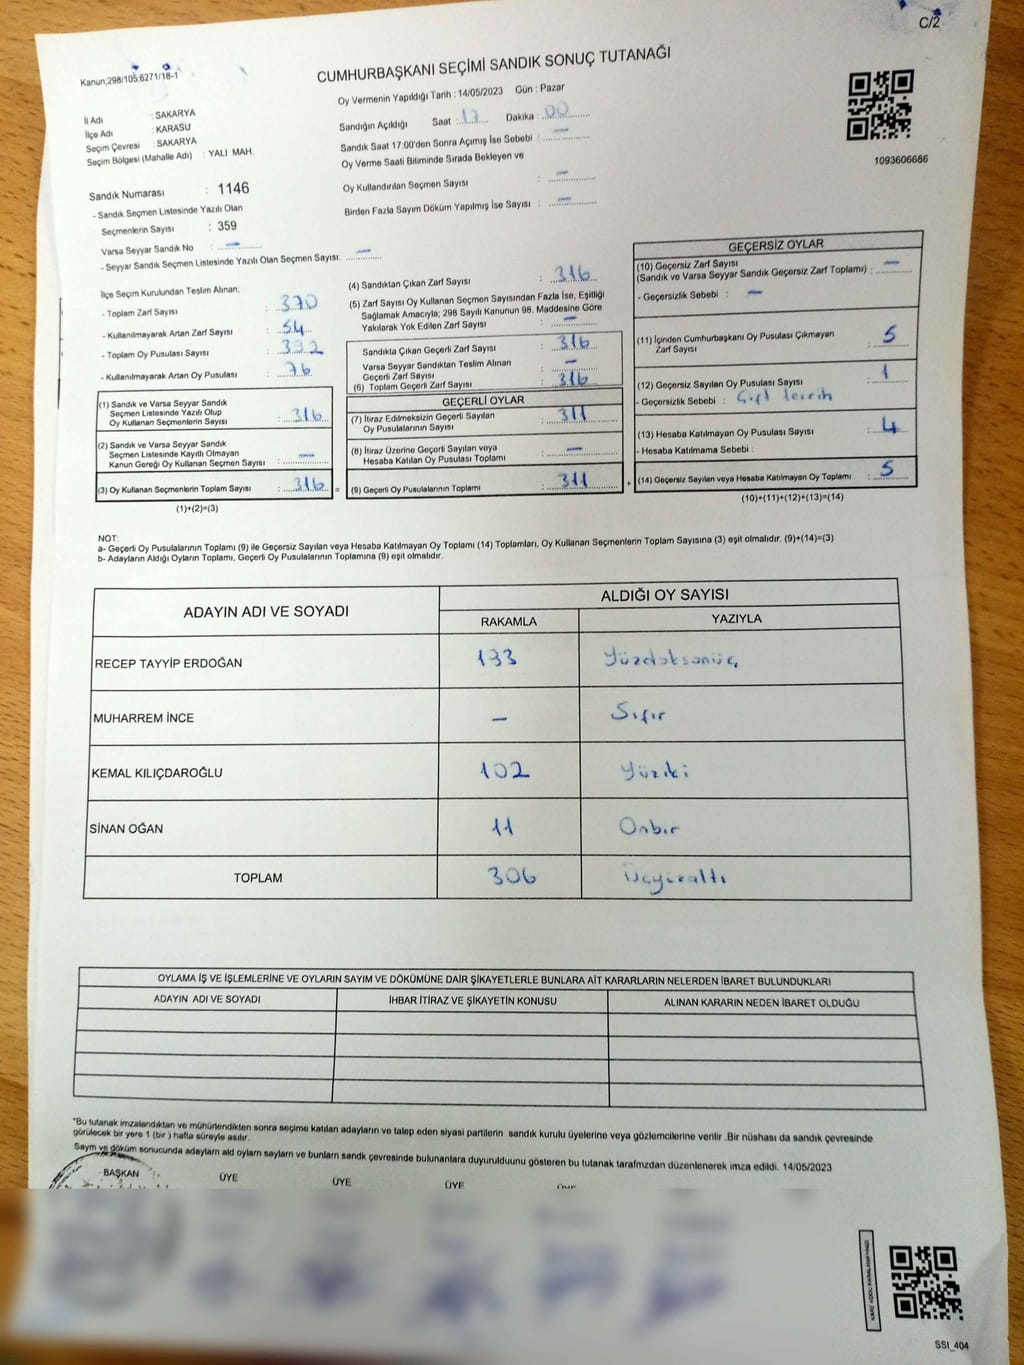 C/2
Kanun;298/105;6271/18-1
CUMHURBAŞKANI SEÇİMİ SANDIK SONUÇ TUTANAĞI
Oy Vermenin Yapıldığı Tarih : 14/05/2023 Gün : Pazar
İl Adı : SAKARYA
İlçe Adı : KARASU
Seçim Çevresi : SAKARYA
Seçim Bölgesi (Mahalle Adı) : YALI MAH.
Sandığın Açıldığı Saat : 17 Dakika : 00
Sandık Saat 17:00'den Sonra Açımış İse Sebebi : —
Oy Verme Saati Bitiminde Sırada Bekleyen ve
Oy Kullandırılan Seçmen Sayısı : —
Birden Fazla Sayım Döküm Yapılmış İse Sayısı : —
1093606686
Sandık Numarası : 1146
- Sandık Seçmen Listesinde Yazılı Olan
Seçmenlerin Sayısı : 359
Varsa Seyyar Sandık No : —
- Seyyar Sandık Seçmen Listesinde Yazılı Olan Seçmen Sayısı: —
İlçe Seçim Kurulundan Teslim Alınan;
- Toplam Zarf Sayısı : 370
- Kullanılmayarak Artan Zarf Sayısı : 54
- Toplam Oy Pusulası Sayısı : 392
- Kullanılmayarak Artan Oy Pusulası : 76
(1) Sandık ve Varsa Seyyar Sandık
Seçmen Listesinde Yazılı Olup
Oy Kullanan Seçmenlerin Sayısı : 316
(2) Sandık ve Varsa Seyyar Sandık
Seçmen Listesinde Kayıtlı Olmayan
Kanun Gereği Oy Kullanan Seçmen Sayısı : —
(3) Oy Kullanan Seçmenlerin Toplam Sayısı : 316 =
(1)+(2)=(3)
(4) Sandıktan Çıkan Zarf Sayısı : 316
(5) Zarf Sayısı Oy Kullanan Seçmen Sayısından Fazla İse, Eşitliği
Sağlamak Amacıyla; 298 Sayılı Kanunun 98. Maddesine Göre
Yakılarak Yok Edilen Zarf Sayısı : —
Sandıkta Çıkan Geçerli Zarf Sayısı : 316
Varsa Seyyar Sandıktan Teslim Alınan
Geçerli Zarf Sayısı : —
(6) Toplam Geçerli Zarf Sayısı : 316
GEÇERLİ OYLAR
(7) İtiraz Edilmeksizin Geçerli Sayılan
Oy Pusulalarının Sayısı : 311
(8) İtiraz Üzerine Geçerli Sayılan veya
Hesaba Katılan Oy Pusulası Toplamı : —
(9) Geçerli Oy Pusulalarının Toplamı : 311 +
GEÇERSİZ OYLAR
(10) Geçersiz Zarf Sayısı
(Sandık ve Varsa Seyyar Sandık Geçersiz Zarf Toplamı) : —
- Geçersizlik Sebebi : —
(11) İçinden Cumhurbaşkanı Oy Pusulası Çıkmayan
Zarf Sayısı : 5
(12) Geçersiz Sayılan Oy Pusulası Sayısı : 1
- Geçersizlik Sebebi : Çift tercih
(13) Hesaba Katılmayan Oy Pusulası Sayısı : 4
- Hesaba Katılmama Sebebi :
(14) Geçersiz Sayılan veya Hesaba Katılmayan Oy Toplamı : 5
(10)+(11)+(12)+(13)=(14)
NOT:
a- Geçerli Oy Pusulalarının Toplamı (9) ile Geçersiz Sayılan veya Hesaba Katılmayan Oy Toplamı (14) Toplamları, Oy Kullanan Seçmenlerin Toplam Sayısına (3) eşit olmalıdır. (9)+(14)=(3)
b- Adayların Aldığı Oyların Toplamı, Geçerli Oy Pusulalarının Toplamına (9) eşit olmalıdır.
ADAYIN ADI VE SOYADI ALDIĞI OY SAYISI
RAKAMLA YAZIYLA
RECEP TAYYİP ERDOĞAN 193 Yüzdoksanüç
MUHARREM İNCE — Sıfır
KEMAL KILIÇDAROĞLU 102 Yüziki
SİNAN OĞAN 11 Onbir
TOPLAM 306 Üçyüzaltı
OYLAMA İŞ VE İŞLEMLERİNE VE OYLARIN SAYIM VE DÖKÜMÜNE DAİR ŞİKAYETLERLE BUNLARA AİT KARARLARIN NELERDEN İBARET BULUNDUKLARI
ADAYIN ADI VE SOYADI İHBAR İTİRAZ VE ŞİKAYETİN KONUSU ALINAN KARARIN NEDEN İBARET OLDUĞU
"Bu tutanak imzalandıktan ve mühürlendikten sonra seçime katılan adayların ve talep eden siyasi partilerin sandık kurulu üyelerine veya gözlemcilerine verilir .Bir nüshası da sandık çevresinde
görülecek bir yere 1 (bir ) hafta süreyle asılır.
Saym ve döküm sonucunda adayların ald oylam saylarn ve bunların sandk çevresinde bulunanlara duyurulduunu gösteren bu tutanak tarafmzdan düzenlenerek imza edildi. 14/05/2023
BAŞKAN ÜYE ÜYE ÜYE
SSI_404